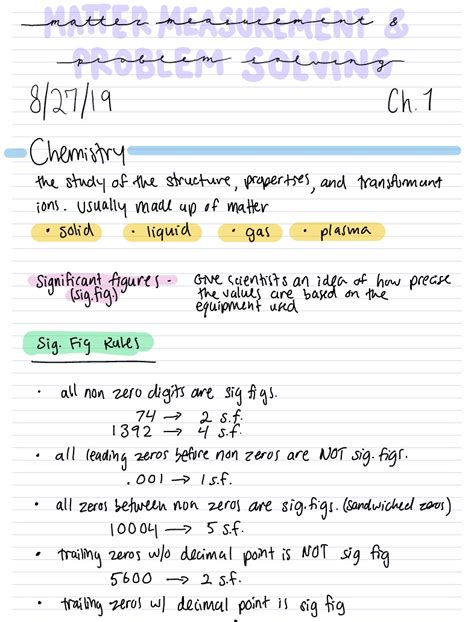 MATTER MEASUREMENT &
PROBLEM SOLVING
8/27/19 Ch. 1
Chemistry
the study of the structure, properties, and transformant
ions. Usually made up of matter
• solid • liquid • gas • plasma
significant figures - Give scientists an idea of how precise
(sig.fig.) the values are based on the
equipment used
Sig. Fig Rules
• all non zero digits are sig figs.
74 → 2 s.f.
1392 → 4 s.f.
• all leading zeros before non zeros are NOT sig. figs.
.001 → 1 s.f.
• all zeros between non zeros are sig.figs. (sandwiched zeros)
10004 → 5 s.f.
• trailing zeros w/o decimal point is NOT sig fig
5600 → 2 s.f.
• trailing zeros w/ decimal point is sig fig